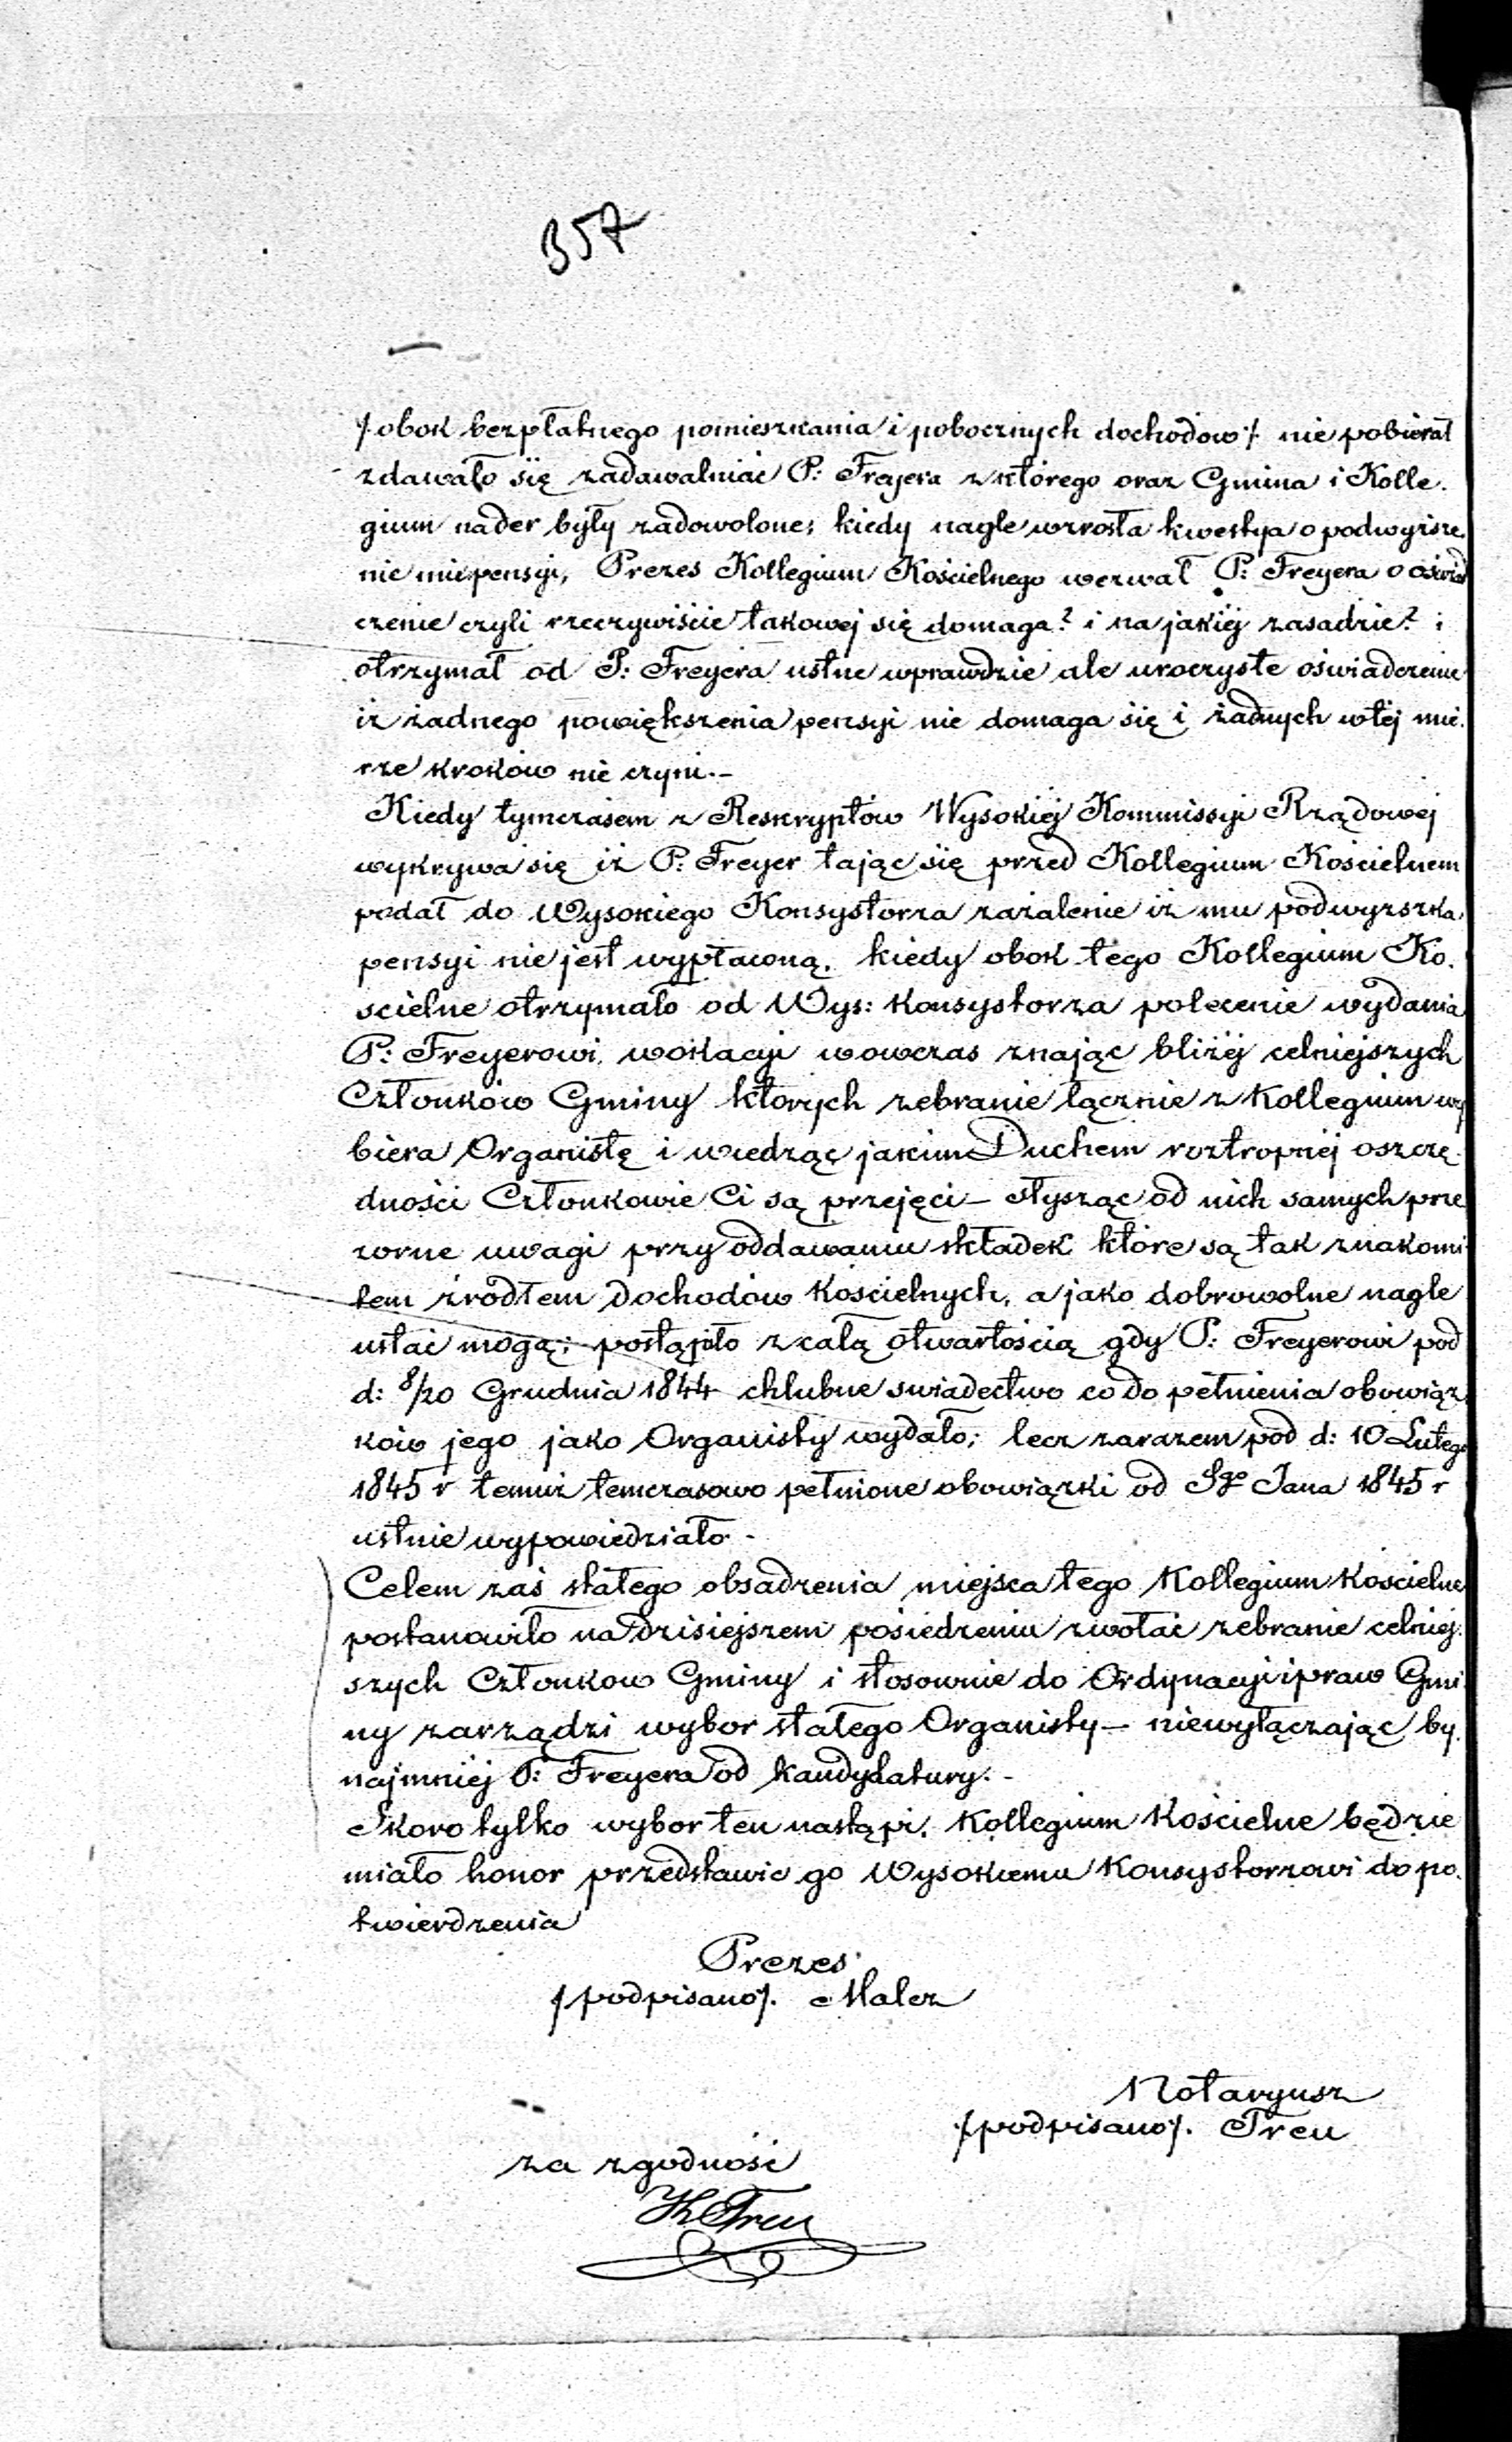 357
/ obok bezpłatnego pomieszkania i pobocznych dochodow /. nie pobierał
zdawało się zadawalniać P: Freyera z którego oraz Gmina i Kolle.
gium nader były zadowolone; kiedy nagle wzrosła kwestya o podwyższe.
nie mu pensyi, Prezes Kollegium Kościelnego wezwał P: Freyera o oświad
czenie czyli rzeczywiście takowej się domaga? i na jakiéj zasadzie? i
otrzymał od P: Freyera ustne wprawdzie ale uroczyste oświadczenie
iż żadnego powiększenia pensyi nie domaga się i żadnych w téj mie.
rze kroków nie czyni.-
Kiedy tymczasem z Reskryptów Wysokiéj Kommissyi Rządowej
wykrywa się iż P: Freyer tając się przed Kollegium Kościelnem
podał do Wysokiego Konsystorza zażalenie iż mu podwyszka
pensyi nie jest wypłaconą, kiedy obok tego Kollegium Ko.
scielne otrzymało od Wys: Konsystorza polecenie wydania
P: Freyerowi wokacyi wowczas znając bliżéj celniejszych
Członków Gminy których zebranie łącznie z Kollegium wy
biera Organistę i wiedząc jakim Duchem roztropnéj oszczę.
dności Członkowie Ci są przejęci – słysząc od nich samych prze
zorne uwagi przy oddawaniu składek które są tak znakomi
tem zrodłem dochodów Koscielnych, a jako dobrowolne nagle
ustać mogą; postąpiło z całą otwartością gdy P: Freyerowi pod
d: 8/20 Grudnia 1844 chlubne swiadectwo co do pełnienia obowiąz
ków jego jako Organisty wydało; lecz zarazem pod d: 10 Lutego
1845 r temuż temczasowo pełnione obowiązki od Sgo Jana 1845 r
ustnie wypowiedziało -
Celem zaś stałego obsadzenia miejsca tego Kollegium Koscielne
postanowiło na dzisiejszem posiedzeniu zwołać zebranie celniej.
szych Członkow Gminy i stosownie do Ordynacyi i praw Gmi.
ny zarządzi wybor stałego Organisty – niewyłączając by.
najmniéj P: Freyera od kandydatury. -
Skoro tylko wybor ten nastąpi, Kollegium Kościelne będzie
miało honor przedstawic go Wysokiemu Konsystorzowi do po.
twierdzenia
Prezes
/ podpisano /. Malcz
Notaryusz
/ podpisano /. Treu
za zgodność
Treu